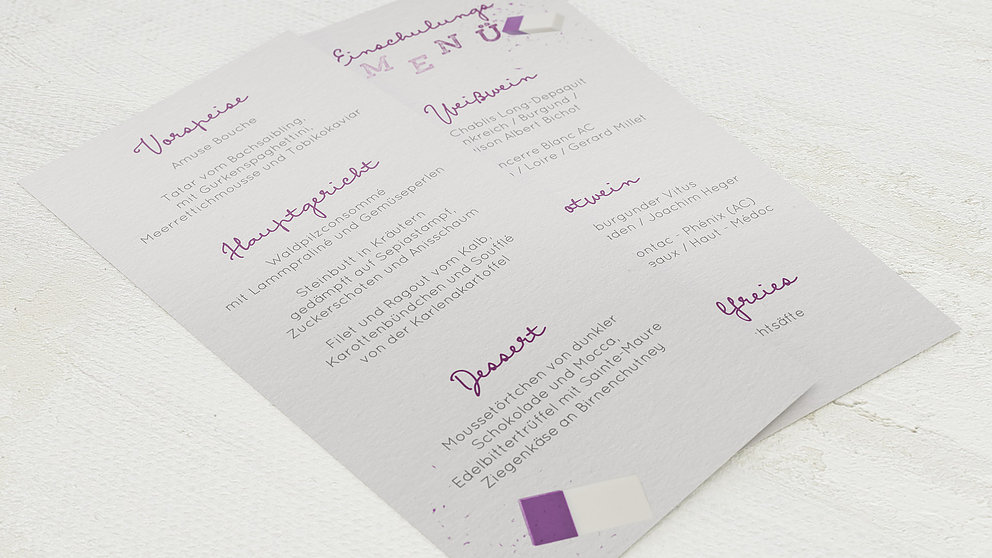 Einschulungs
MENÜ
Vorspeise
Amuse Bouche
Tatar vom Bachsaibling,
mit Gurkenspaghettini,
Meerrettichmousse und Tobikokaviar
Hauptgericht
Waldpilzconsommé
mit Lammpraliné und Gemüseperlen
Steinbutt in Kräutern
gedämpft auf Sepiastampf,
Zuckerschoten und Anisschaum
Filet und Ragout vom Kalb,
Karottenbündchen und Soufflé
von der Karlenakartoffel
Dessert
Moussetörtchen von dunkler
Schokolade und Mocca,
Edelbittertrüffel mit Sainte-Maure
Ziegenkäse an Birnenchutney
Weißwein
Chablis Long Depaquit
nkreich / Burgund /
ison Albert Bichot
ncerre Blanc AC
/ Loire / Gerard Millet
otwein
burgunder Vitus
den / Joachim Heger
ontac - Phénix (AC)
eaux / Haut - Médoc
lfreies
htsäfte